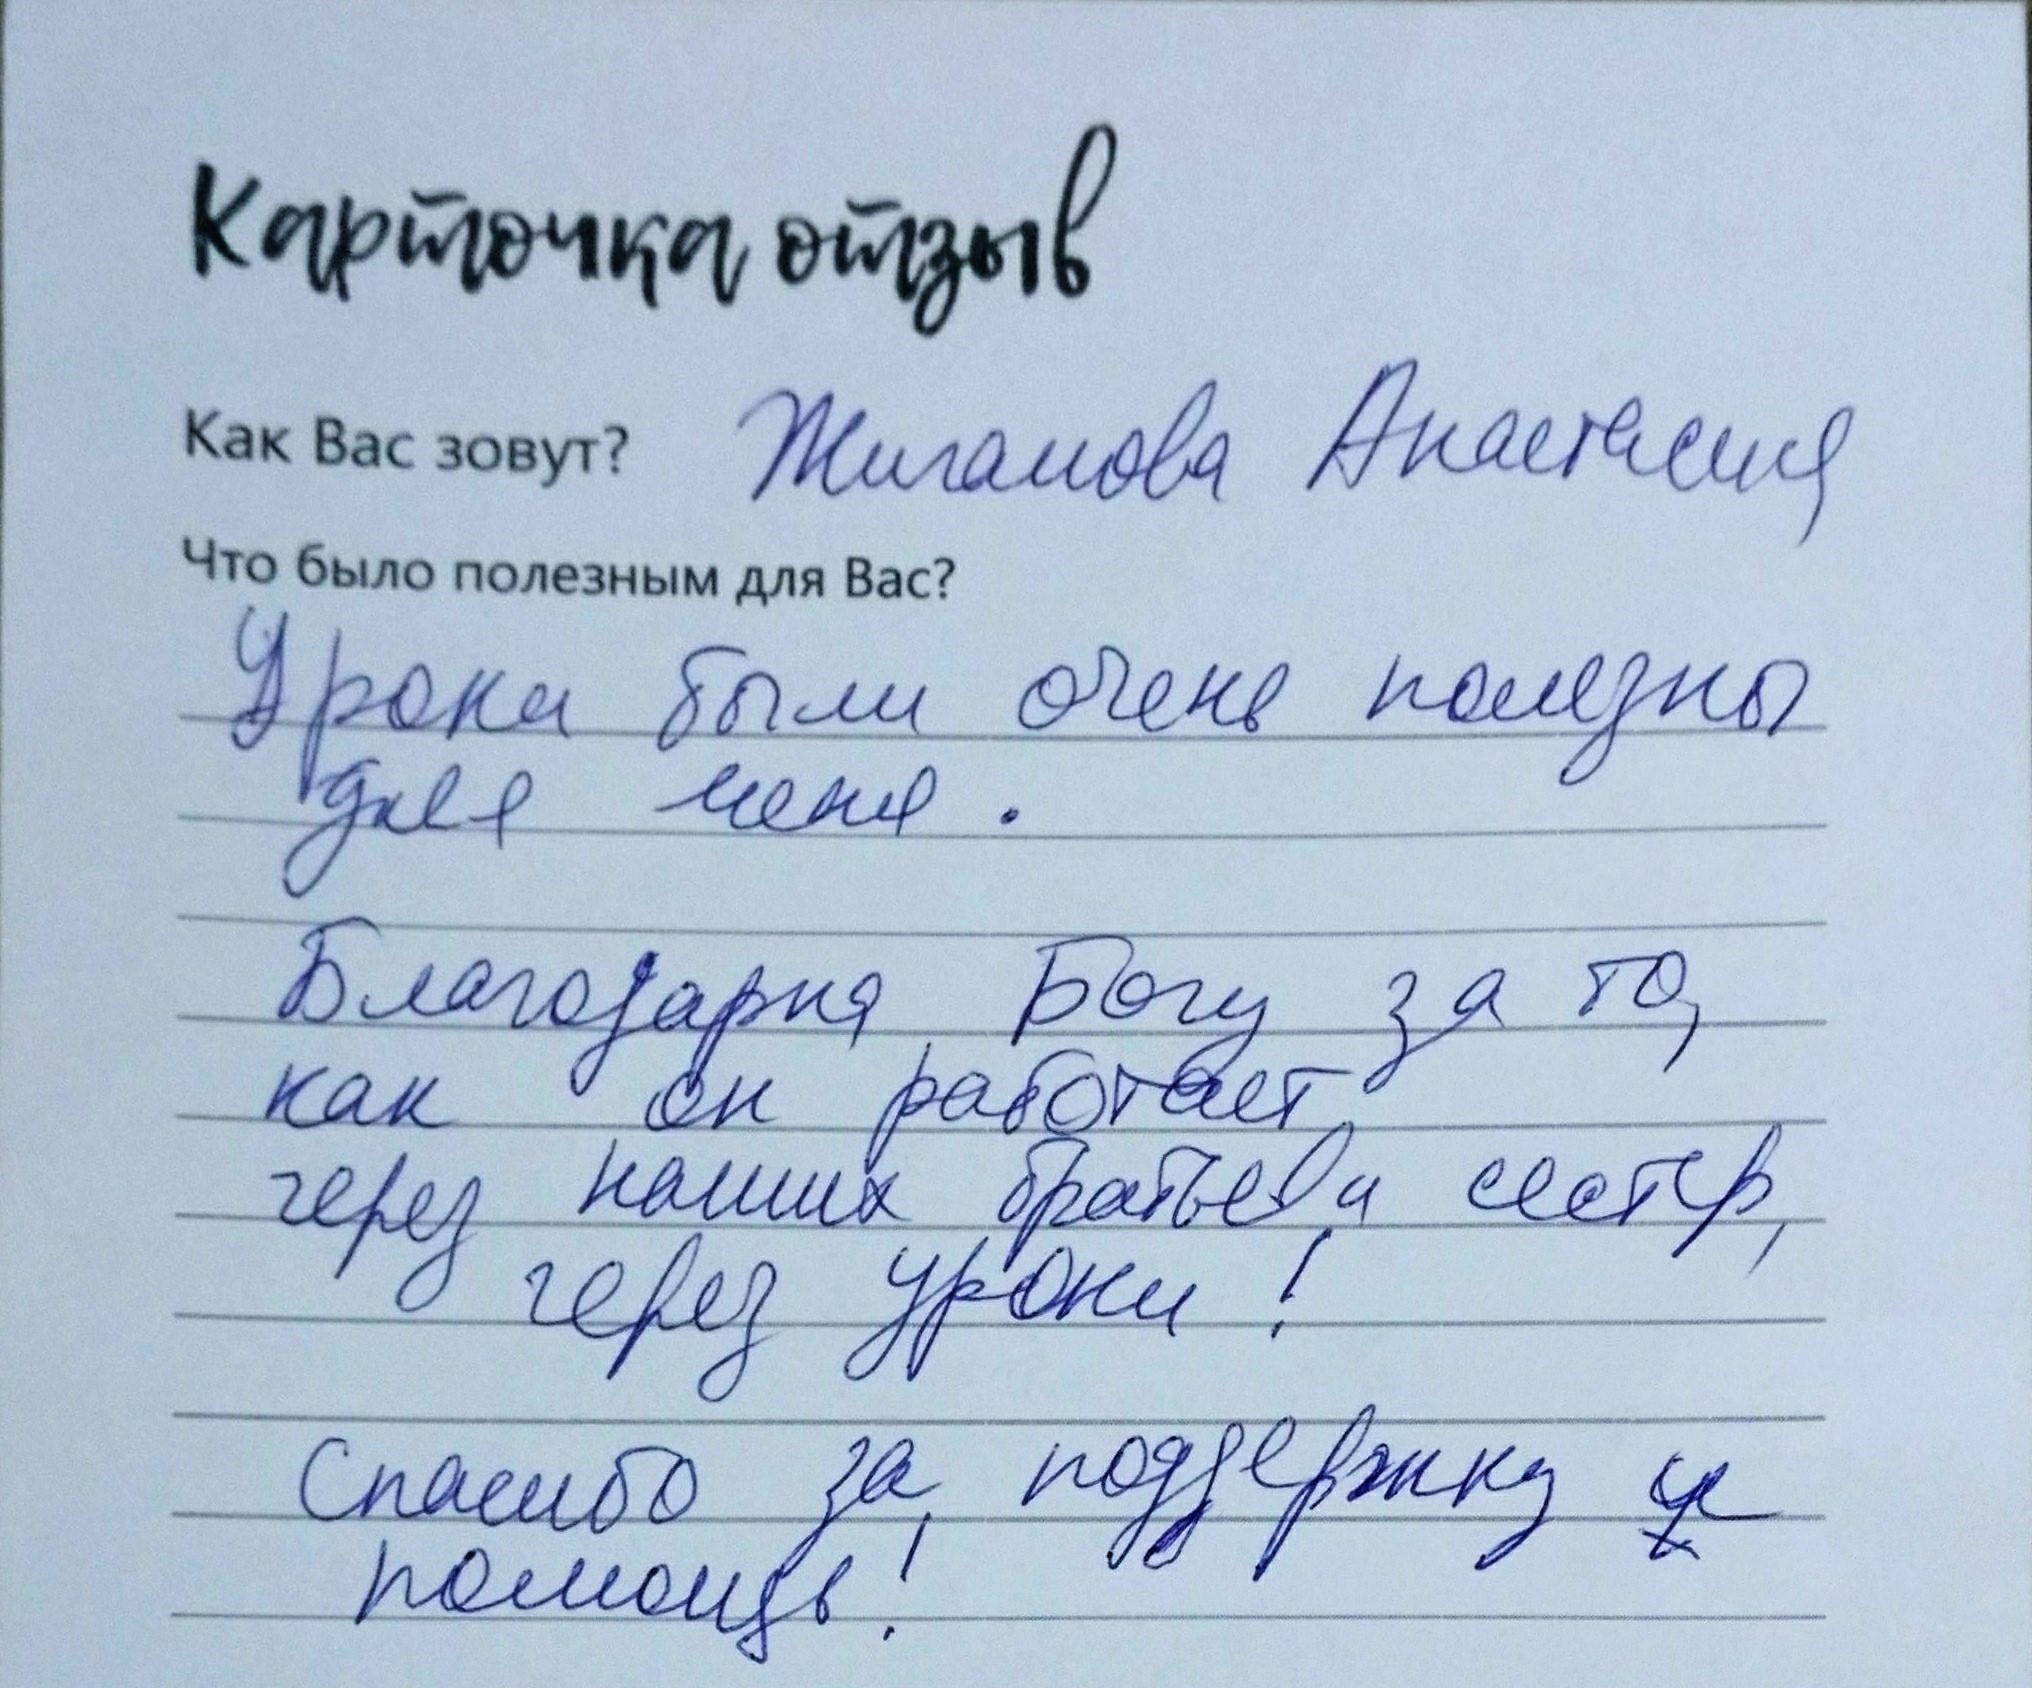 Карточка отзыв
Как Вас зовут? Жиганова Анастасия
Что было полезным для Вас?
Уроки были очень полезны
для меня.
Благодарна Богу за то,
как он работает
через наших братьев и сестёр,
через уроки!
Спасибо за поддержку и
помощь!